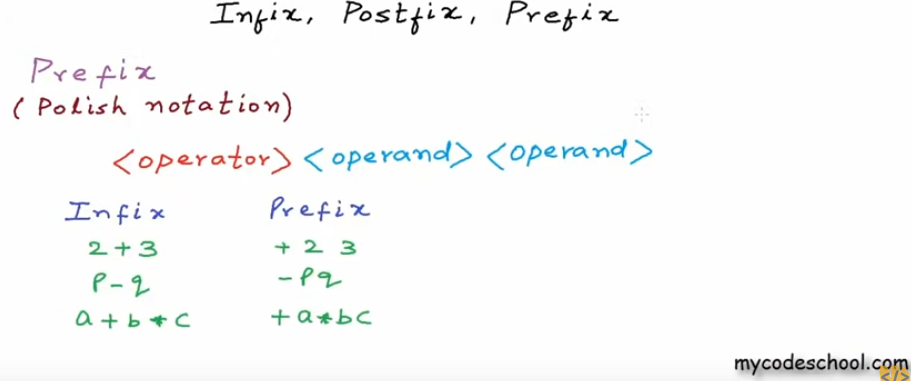 Infix, Postfix, Prefix
Prefix
(Polish notation)
<operator> <operand> <operand>
Infix Prefix
2+3 + 2 3
p-q -pq
a+b*c +a*bc
mycodeschool.com
</>